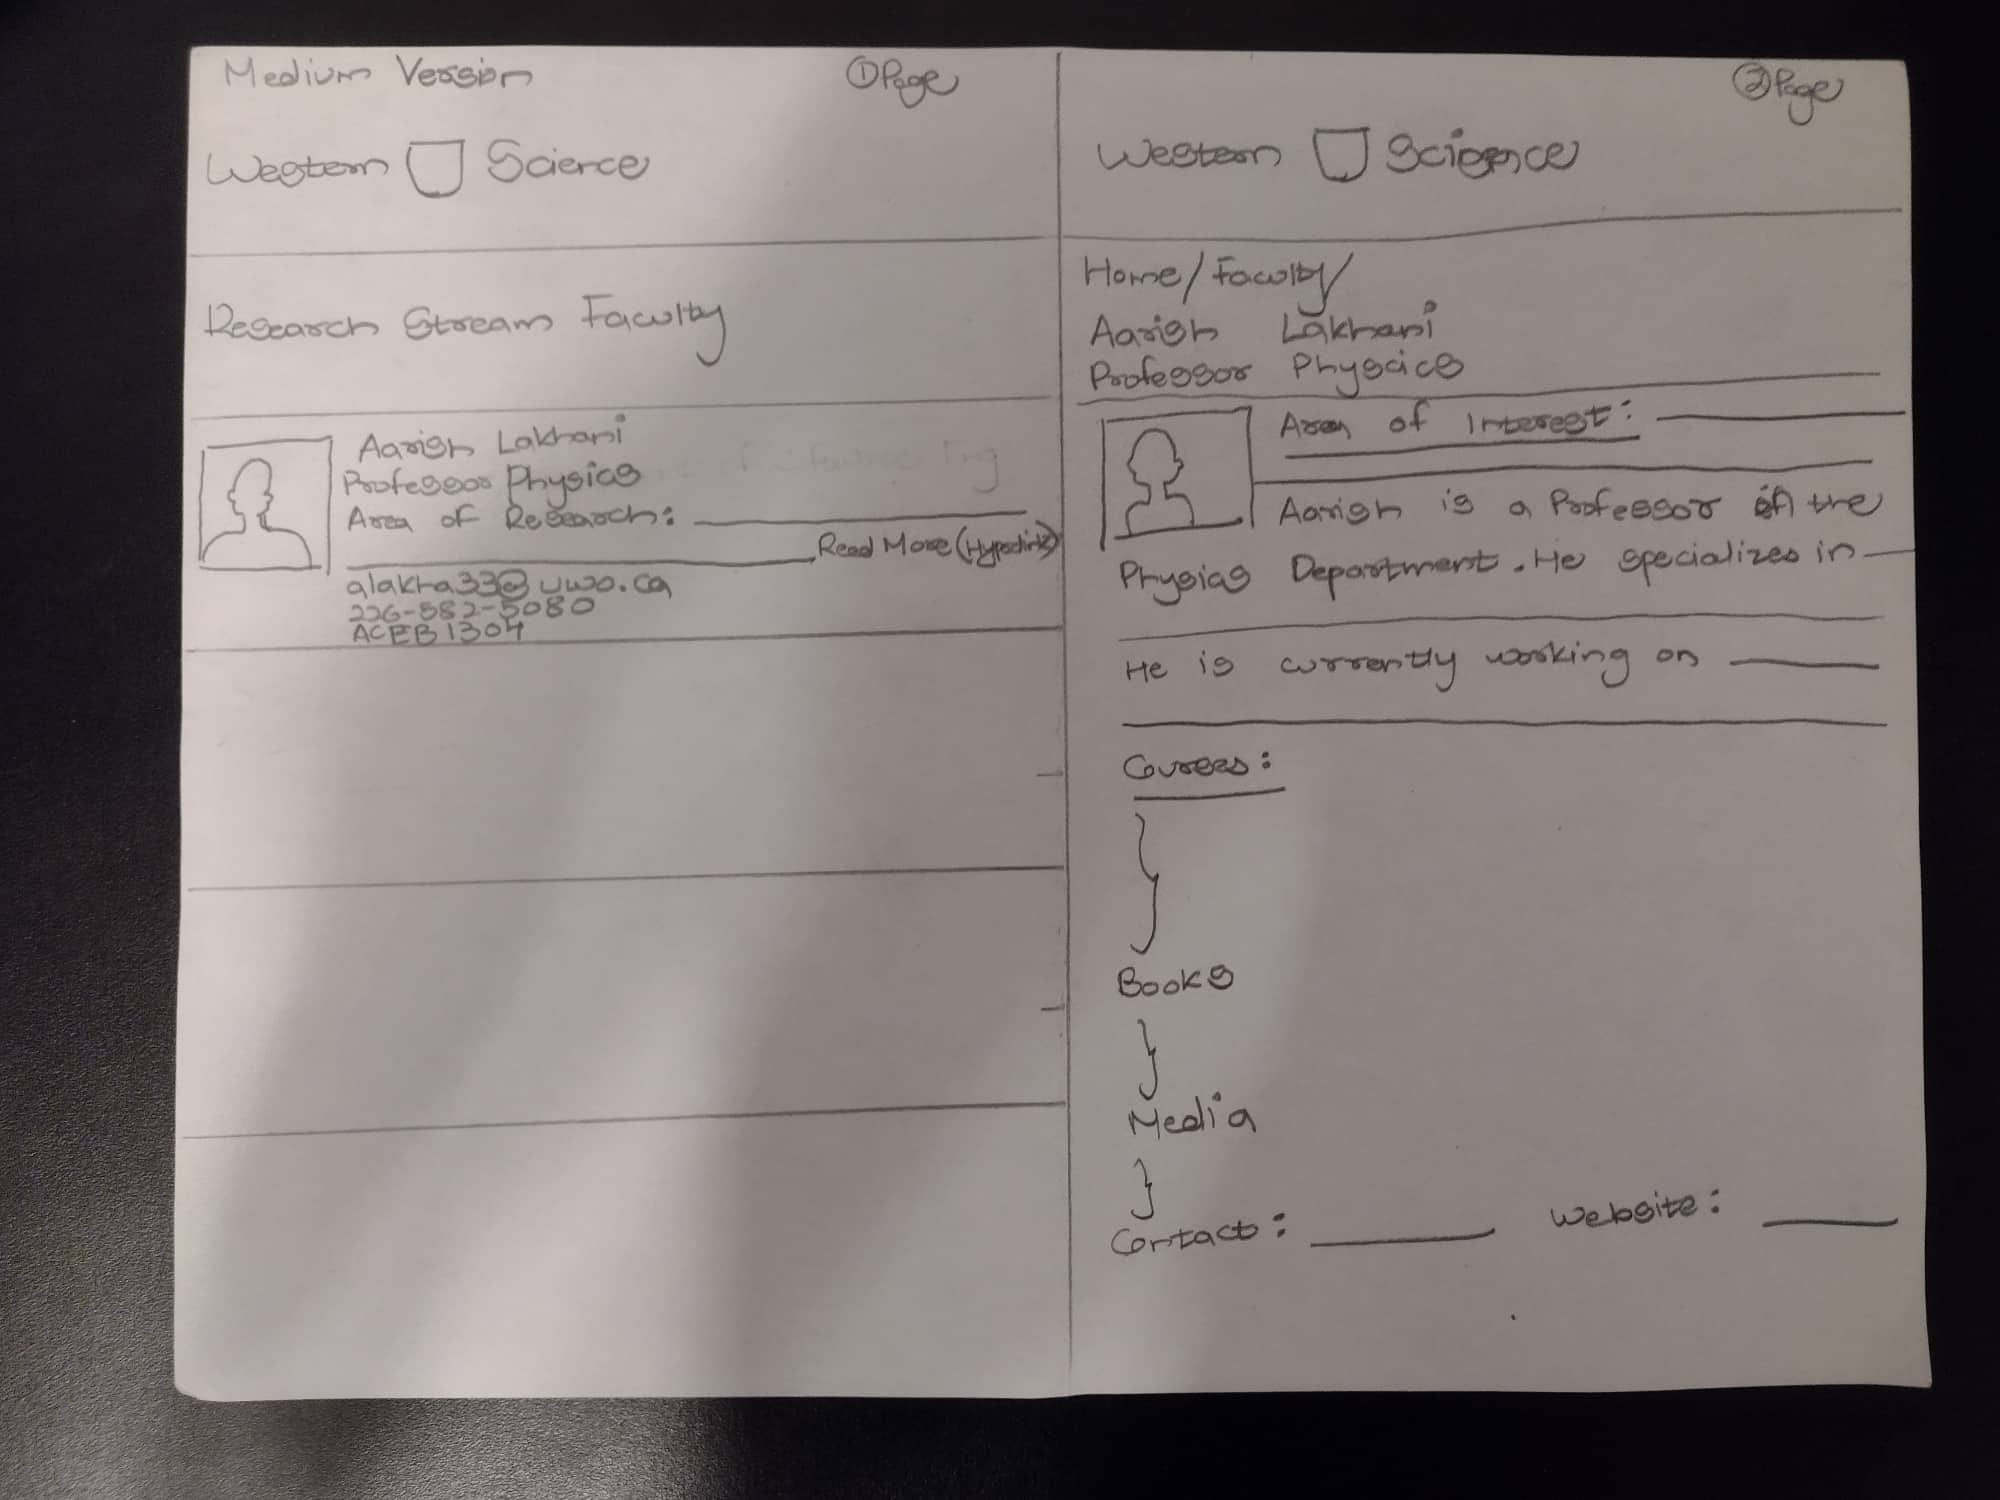 Medium Version
① Page
Western Science
Research Stream Faculty
Aarish Lakhani
Professor Physics
Area of Research:
Read More (Hyperlink)
alakha33@uwo.ca
226-582-5080
ACEB 1304
② Page
Western Science
Home/Faculty/
Aarish Lakhani
Professor Physcics
Area of Interest:
Aarish is a Professor in the
Physics Department. He specializes in
He is currently working on
Courses:
Books
Media
Contact: Website: